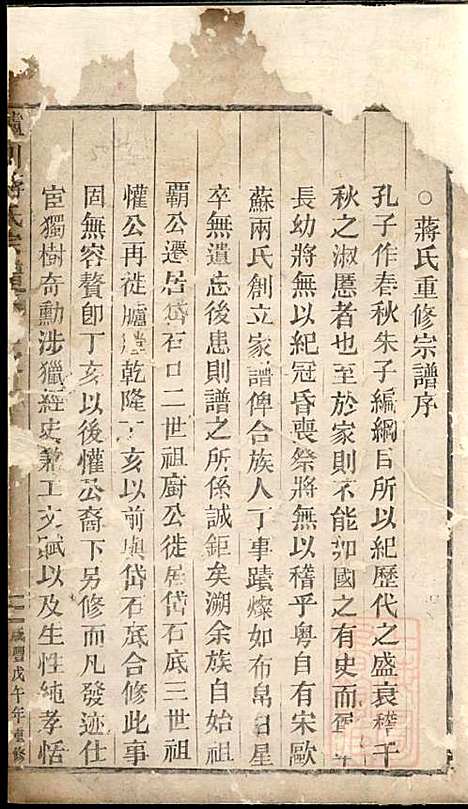 ○蔣氏重修宗譜序
孔子作春秋朱子編綱目所以紀歷代之盛衰稽千
秋之淑慝者也至於家則不能如國之有史而尊
長幼將無以紀冠昏喪祭將無以稽乎粤自有宋歐
蘇兩氏創立家譜俾合族人丁事蹟燦如布帛日星
卒無遺忘後患則譜之所係誠鉅矣溯余族自始祖
霸公遷居岱石口二世祖廚公徙居岱石底三世祖
懽公再徙臚澧乾隆丁亥以前與岱石底合修此事
固無容贅卽丁亥以後懽公裔下另修而凡發迹仕
宦獨樹奇勳涉獵經史兼工文賦以及生性純孝恬
川蔣氏宗譜
咸豐戊午年重修